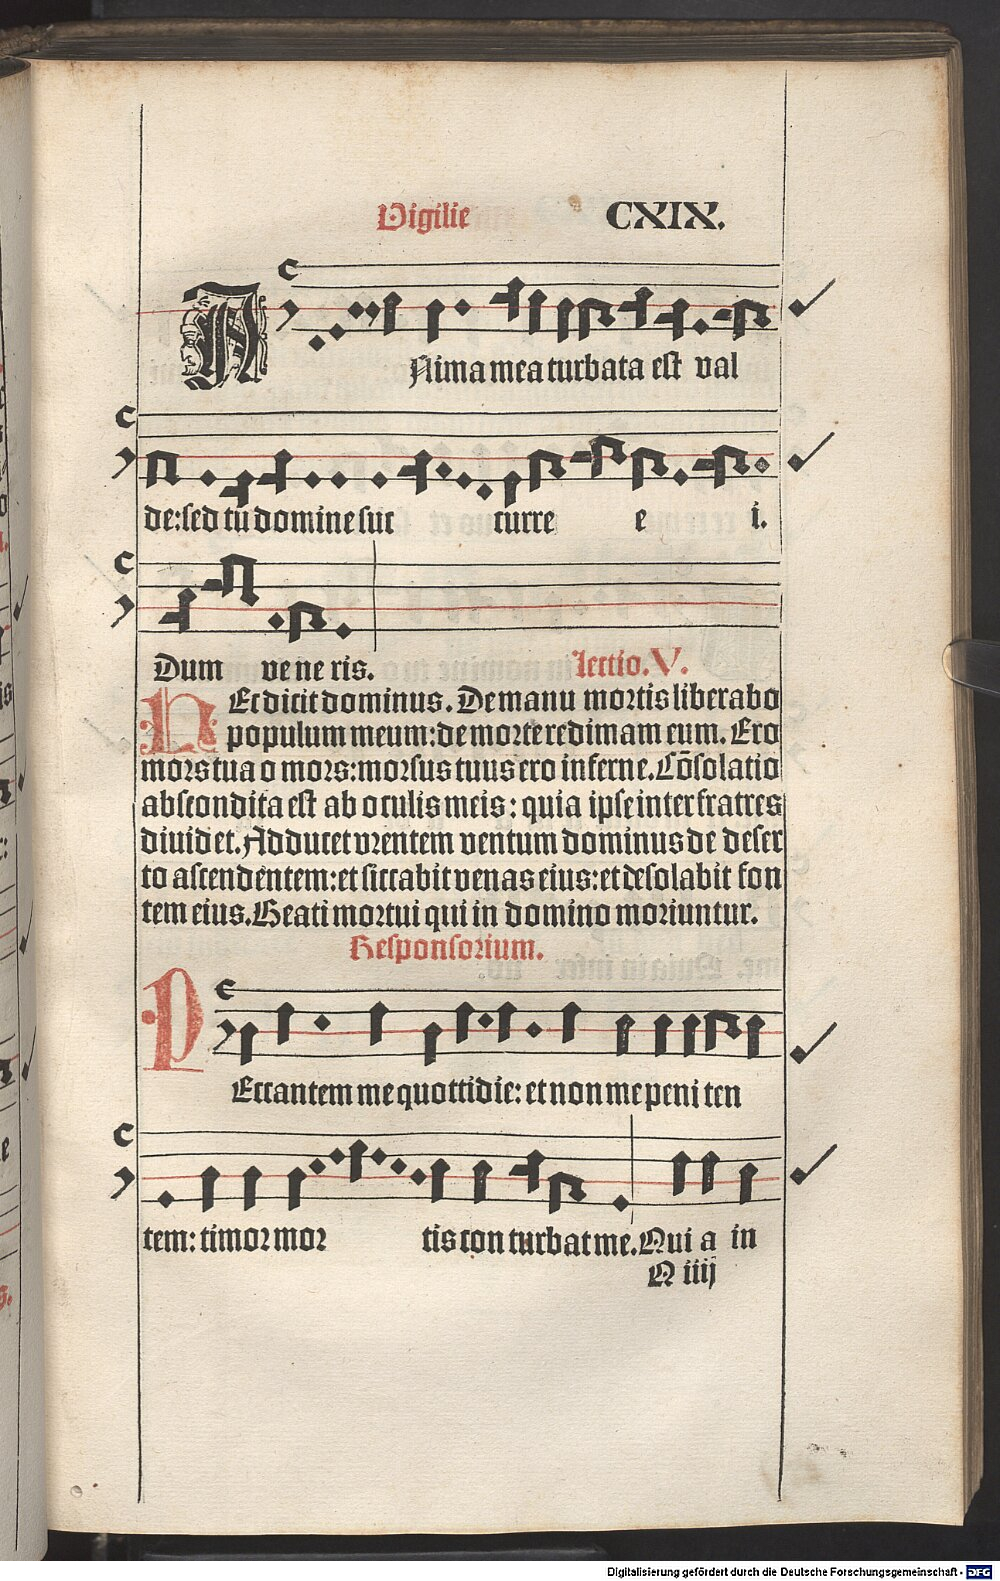 Vigilie CXIX.
Anima mea turbata est val
de: sed tu domine suc curre e i.
Dum vene ris. Lectio. V.
Hec dicit dominus. De manu mortis liberabo
populum meum: de morte redimam eum. Ero
mors tua o mors: morsus tuus ero inferne. Cōsolatio
abscondita est ab oculis meis: quia ipse inter fratres
dividet. Adducet vrentem ventum dominus de deser
to ascendentem: et siccabit venas eius: et desolabit fon
tem eius. Beati mortui qui in domino moriuntur.
Responsorium.
Peccantem me quottidie: et non me peni ten
tem: timor mor tis con turbat me. Qui a in
N iiij
Digitalisierung gefördert durch die Deutsche Forschungsgemeinschaft - DFG